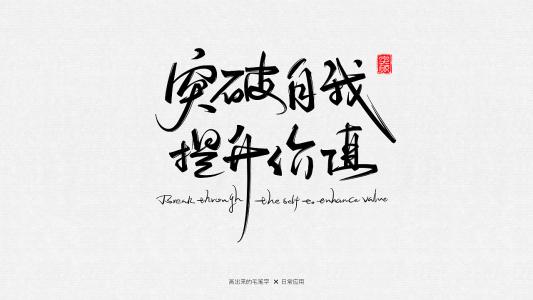 突破自我
提升价值
Break through the self to enhance value
画出来的毛笔字 × 日常应用